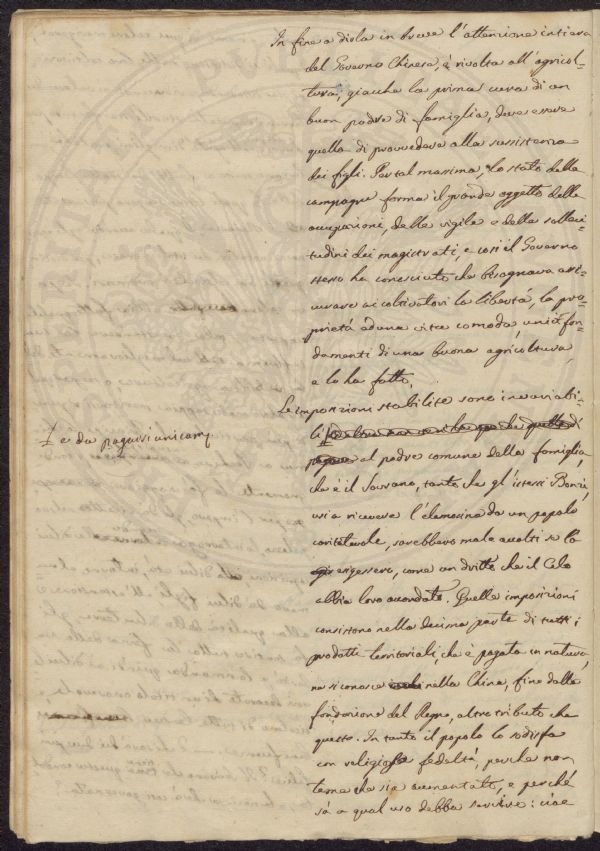 In fine a dirla in breve l'attenzione intiera
del Governo Chinese, è rivolta all'agricol-
tura, giacchè la prima cura di un
buon padre di famiglia, deve essere
quella di provvedere alla sussistenza
dei figli. Per tal massima, lo stato delle
campagne forma il grande oggetto delle
occupazioni, delle vigilie e delle solleci-
tudini dei magistrati, e così il Governo
stesso ha conosciuto che bisognava assi-
curare ai coltivatori la libertà, la pro-
prietà ad una vita comoda, unici fon-
damenti di una buona agricoltura,
e lo ha fatto.
Le imposizioni stabilite sono invariabi-
li
e da pagarsi unicam.
al padre comune della famiglia,
che è il Sovrano, tanto che gl'istessi Bonzi,
usi a ricevere l'elemosina da un popolo
caritatevole, sarebbero male accolti se la
esigessero, come un dritto che il Cielo
abbia loro accordato. Quelle imposizioni
consistono nella decima parte di tutti i
prodotti territoriali, che è pagata in natura,
ne si conosce nella China, fine dalla
fondazione del Regno, altro tributo che
questo. In tanto il popolo lo sodisfa
con religiosa fedeltà, perche non
teme che sia aumentato, e perché
sà a qual uso debba servire: cioe